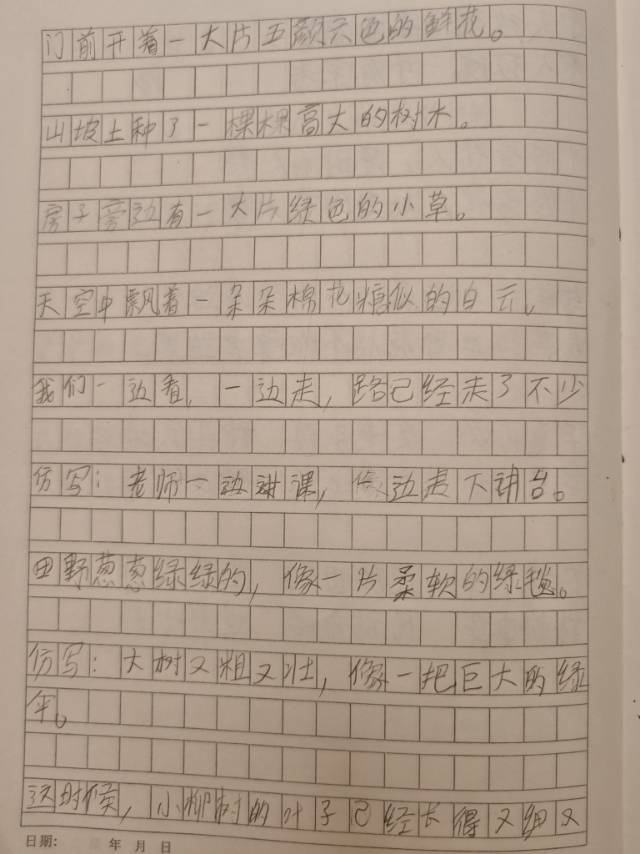 门前开着一大片五颜六色的鲜花。
山坡上种了一棵棵高大的树木。
房子旁边有一大片绿色的小草。
天空中飘着一朵朵棉花糖似的白云。
我们一边看，一边走，路已经走了不少
仿写：老师一边讲课，边走下讲台。
田野葱葱绿绿的，像一片柔软的绿毯。
仿写：大树又粗又壮，像一把巨大的绿
伞。
这时候，小柳树的叶子已经长得又细又
日期： 年 月 日